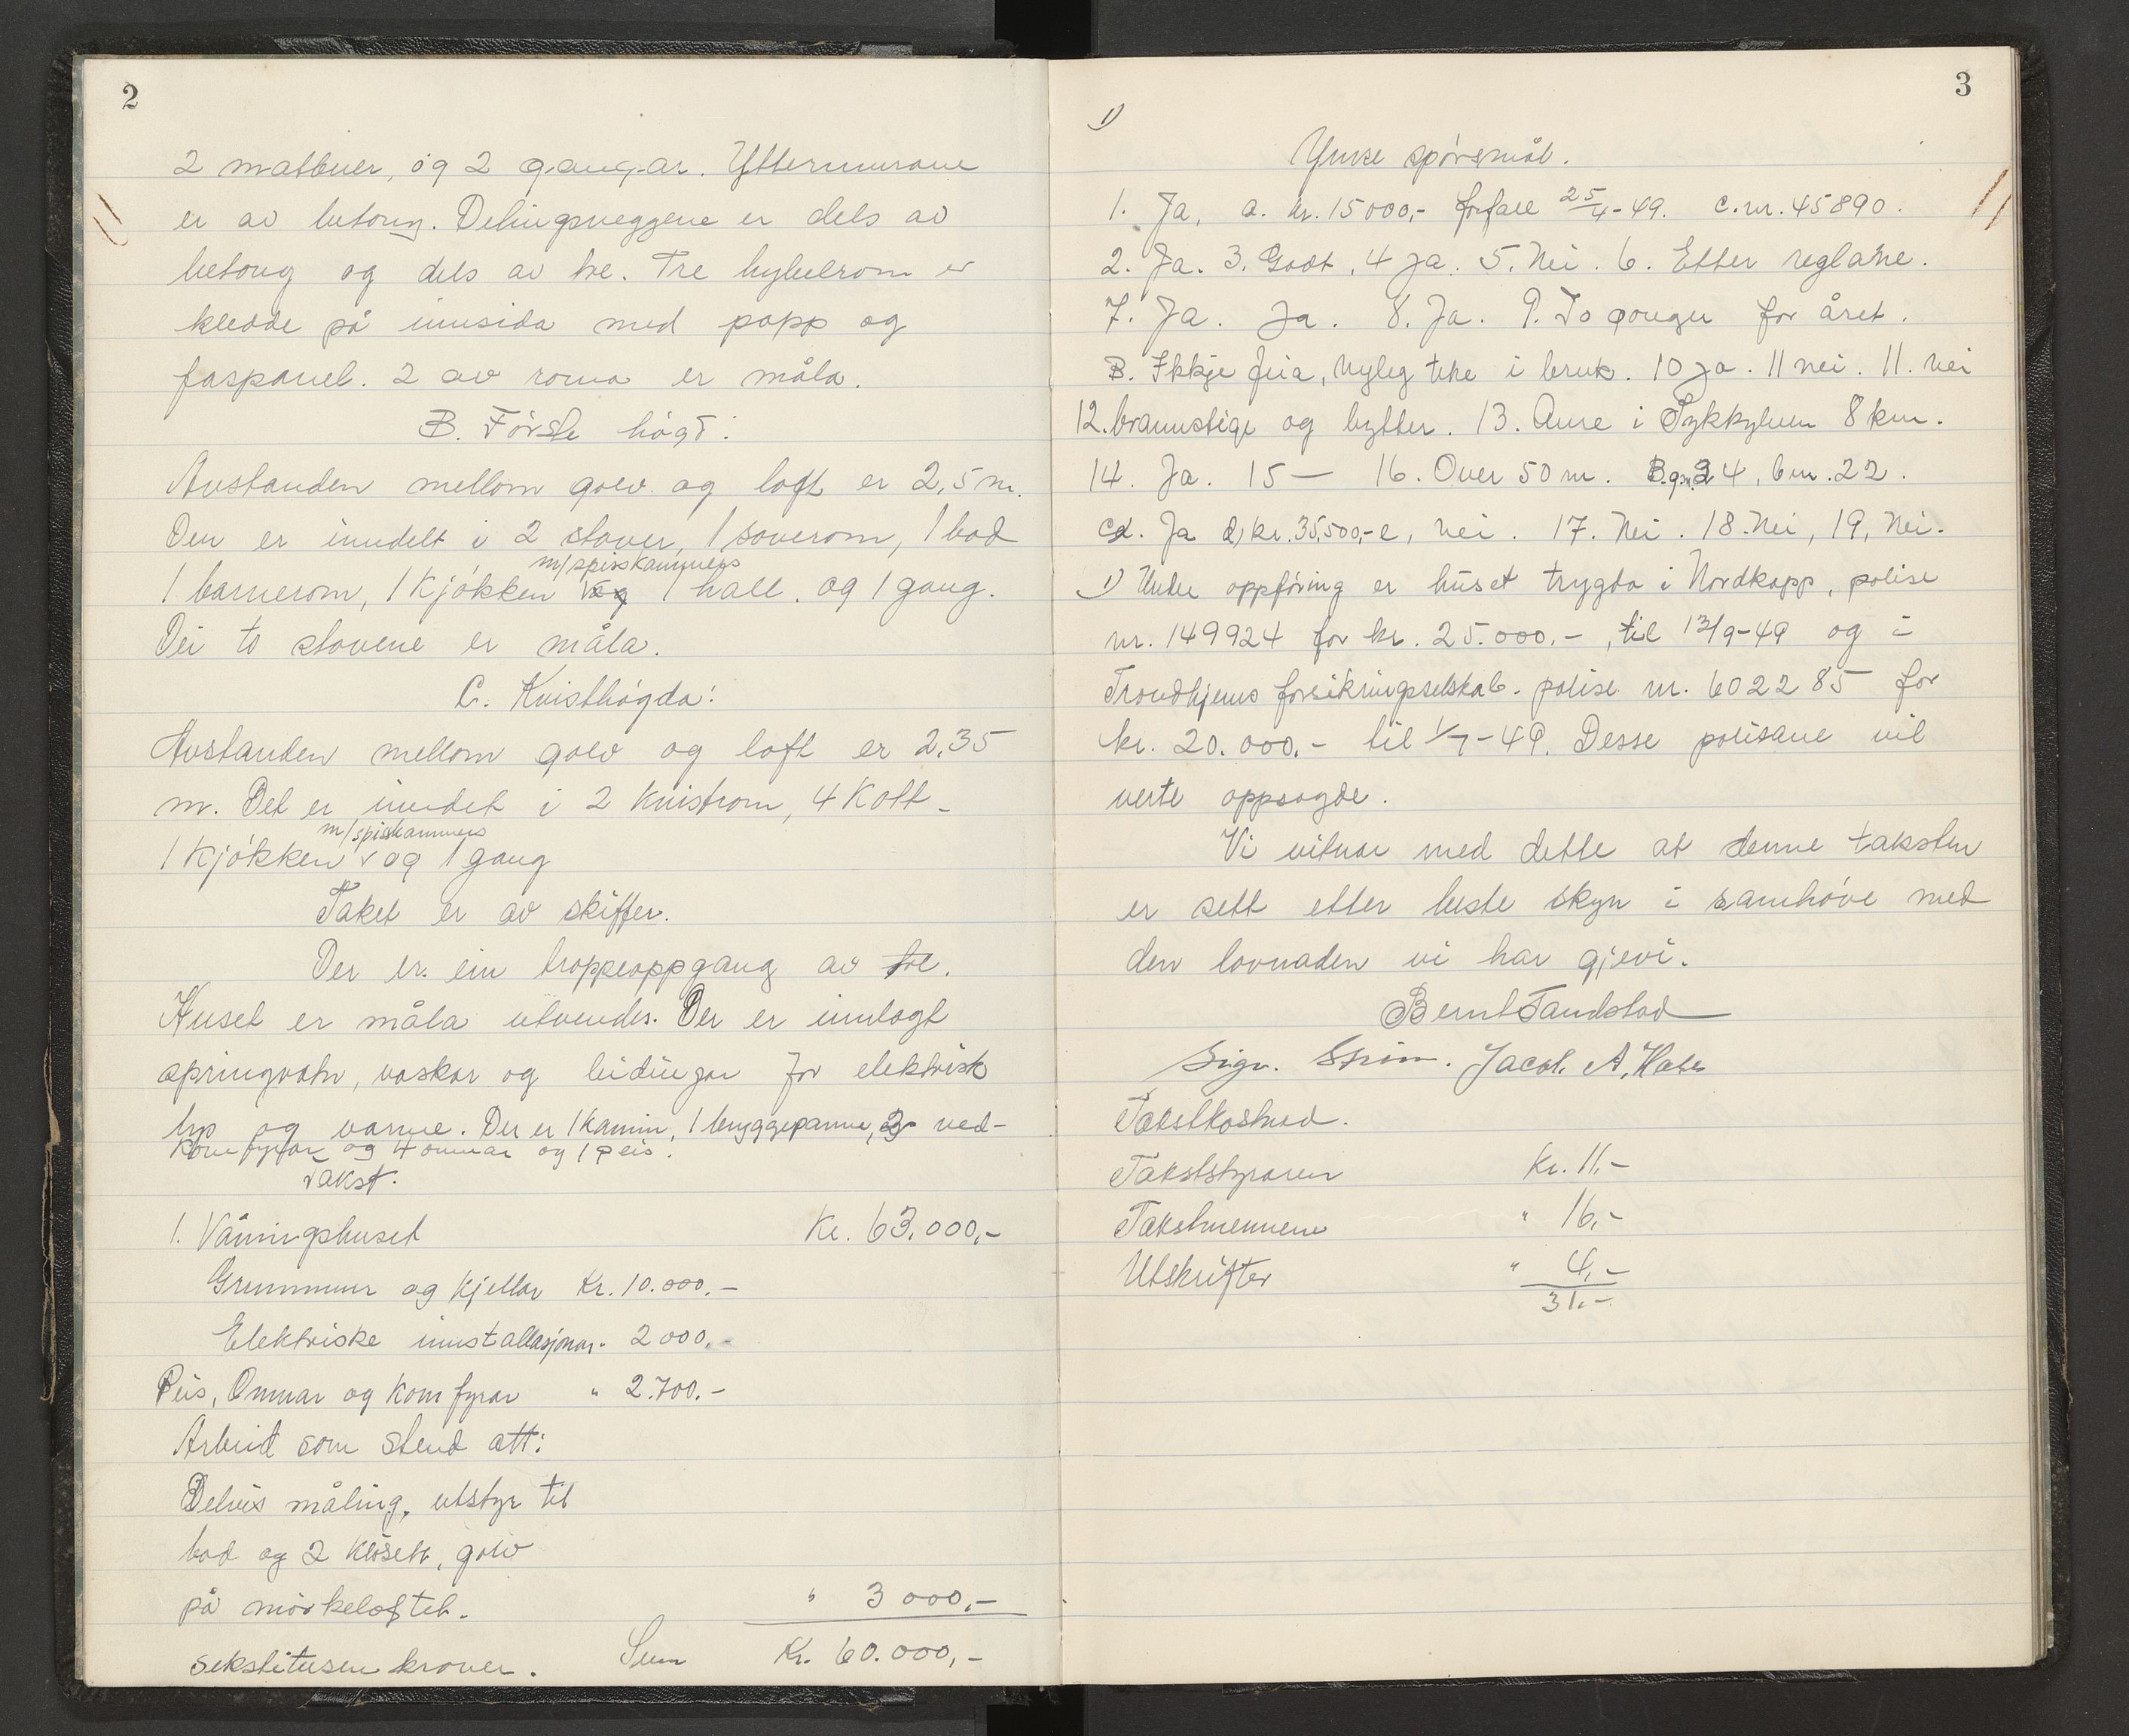 2
2 matbuer, og 2 gangar. Yttermurane
er av betong. Delingsveggene er dels av
betong og dels av tre. Tre hybelrom er
kledde på innsida med papp og
faspanel. 2 av roma er måla.
B. Første høgd:
Avstanden mellom golv og loft er 2,5 m.
Den er inndelt i 2 stover, 1 soverom, 1 bad
m/spisskammers
1 barnerom, 1 kjøkken 1 hall. og 1 gang.
Dei to stovene er måla.
C. Kvisthøgda:
Avstanden mellom golv og loft er 2,35
m. Det er inndet i 2 kvistrom, 4 kott-
m/spisskammers
1 kjøkken v og 1 gang
Taket er av skiffer.
Der er ein troppeoppgang av tre.
Huset er måla utvendes. Der er innlagt
springvatn, vaskar og leidingar for elektrisk
lys og varme. Der er 1 kamin, 1 bryggepanne, 2 ved-
komfyrar og 4 omnar og 1 peis.
Takst.
1. Våningshuset Kr. 63.000,-
Grunnmur og kjellar Kr. 10.000.-
Elektriske innstallasjonar. 2000.-
Peis, Omnar og komfyrar " 2.700.-
Arbeid som stend att:
Delvis måling, utstyr til
bad og 2 klosett, golv
på mørkeloftet. " 3000,-
sekstitusen kroner. Sum Kr. 60.000,-
3
1)
Ymse spørsmål.
1. Ja, a. kr. 15000,- forfall 25/4-49. c.nr. 45890.
2. Ja. 3. Godt, 4 ja. 5. Nei. 6. Etter reglane.
7. Ja. Ja. 8. Ja. 9. To gonger for året.
B. Ikkje feia, nyleg teke i bruk. 10 ja. 11 nei. 11. nei
12. brannstige og bytter. 13. Aure i Sykkylven 8 km.
14. Ja. 15 — 16. Over 50 m. B. g.nr. 4, bnr. 22.
Ja d, kr. 35,500,- e, nei. 17. Nei. 18. Nei, 19, Nei.
1) Under oppføring er huset trygda i Nordkapp, polise
nr. 149924 for kr. 25.000.-, til 13/9-49 og i
Trondhjems forsikringselskab. polise nr. 602285 for
kr. 20.000.- til 1/7-49. Desse polisane vil
verte oppsagde.
Vi vitnar med dette at denne taksten
er sett etter beste skyn i samhøve med
den lovnaden vi har gjevi.
Bernt Tandstad
Sign. Strøm. Jacob. A.
Takstkostnad.
Takststyraren Kr. 11.-
Takstmennene " 16,-
Utskrifter " 4,-
31.-